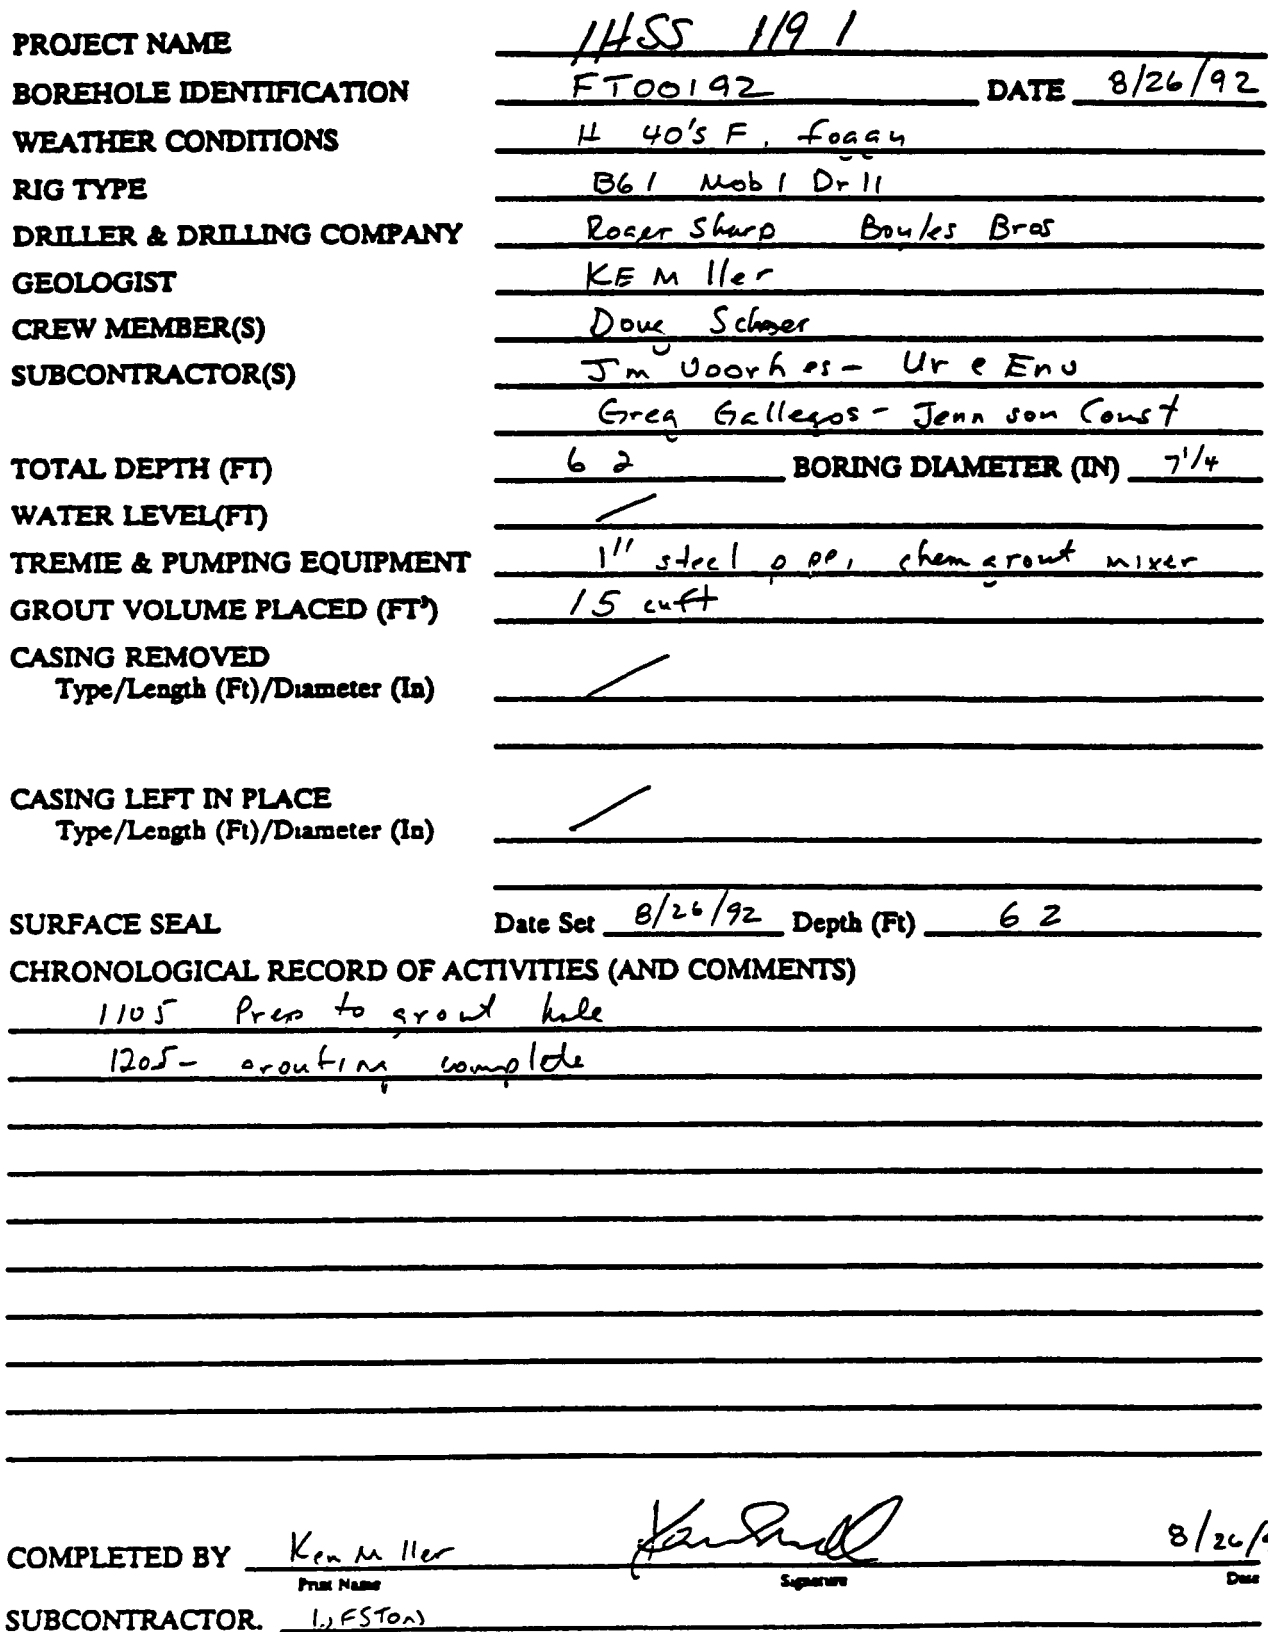 PROJECT NAME IHSS 119 1
BOREHOLE IDENTIFICATION FT00192 DATE 8/26/92
WEATHER CONDITIONS 40's F, foggy
RIG TYPE B61 Mob l Dr ll
DRILLER & DRILLING COMPANY Roger Sharp Boyles Bros
GEOLOGIST KE M ller
CREW MEMBER(S) Doug
SUBCONTRACTOR(S) J m Voorh es - Ur e Env
Greg Gallegos - Jenn son Const
TOTAL DEPTH (FT) 6 2 BORING DIAMETER (IN) 7 1/4
WATER LEVEL(FT) /
TREMIE & PUMPING EQUIPMENT 1" steel p pe, chemgrout mixer
GROUT VOLUME PLACED (FT³) 15 cuft
CASING REMOVED /
Type/Length (Ft)/Diameter (In)
CASING LEFT IN PLACE /
Type/Length (Ft)/Diameter (In)
SURFACE SEAL Date Set 8/26/92 Depth (Ft) 6 2
CHRONOLOGICAL RECORD OF ACTIVITIES (AND COMMENTS)
1105 Prep to grout hole
1205 - grouting complete
COMPLETED BY Ken M ller 8/26/
Print Name Signature Date
SUBCONTRACTOR. WESTON